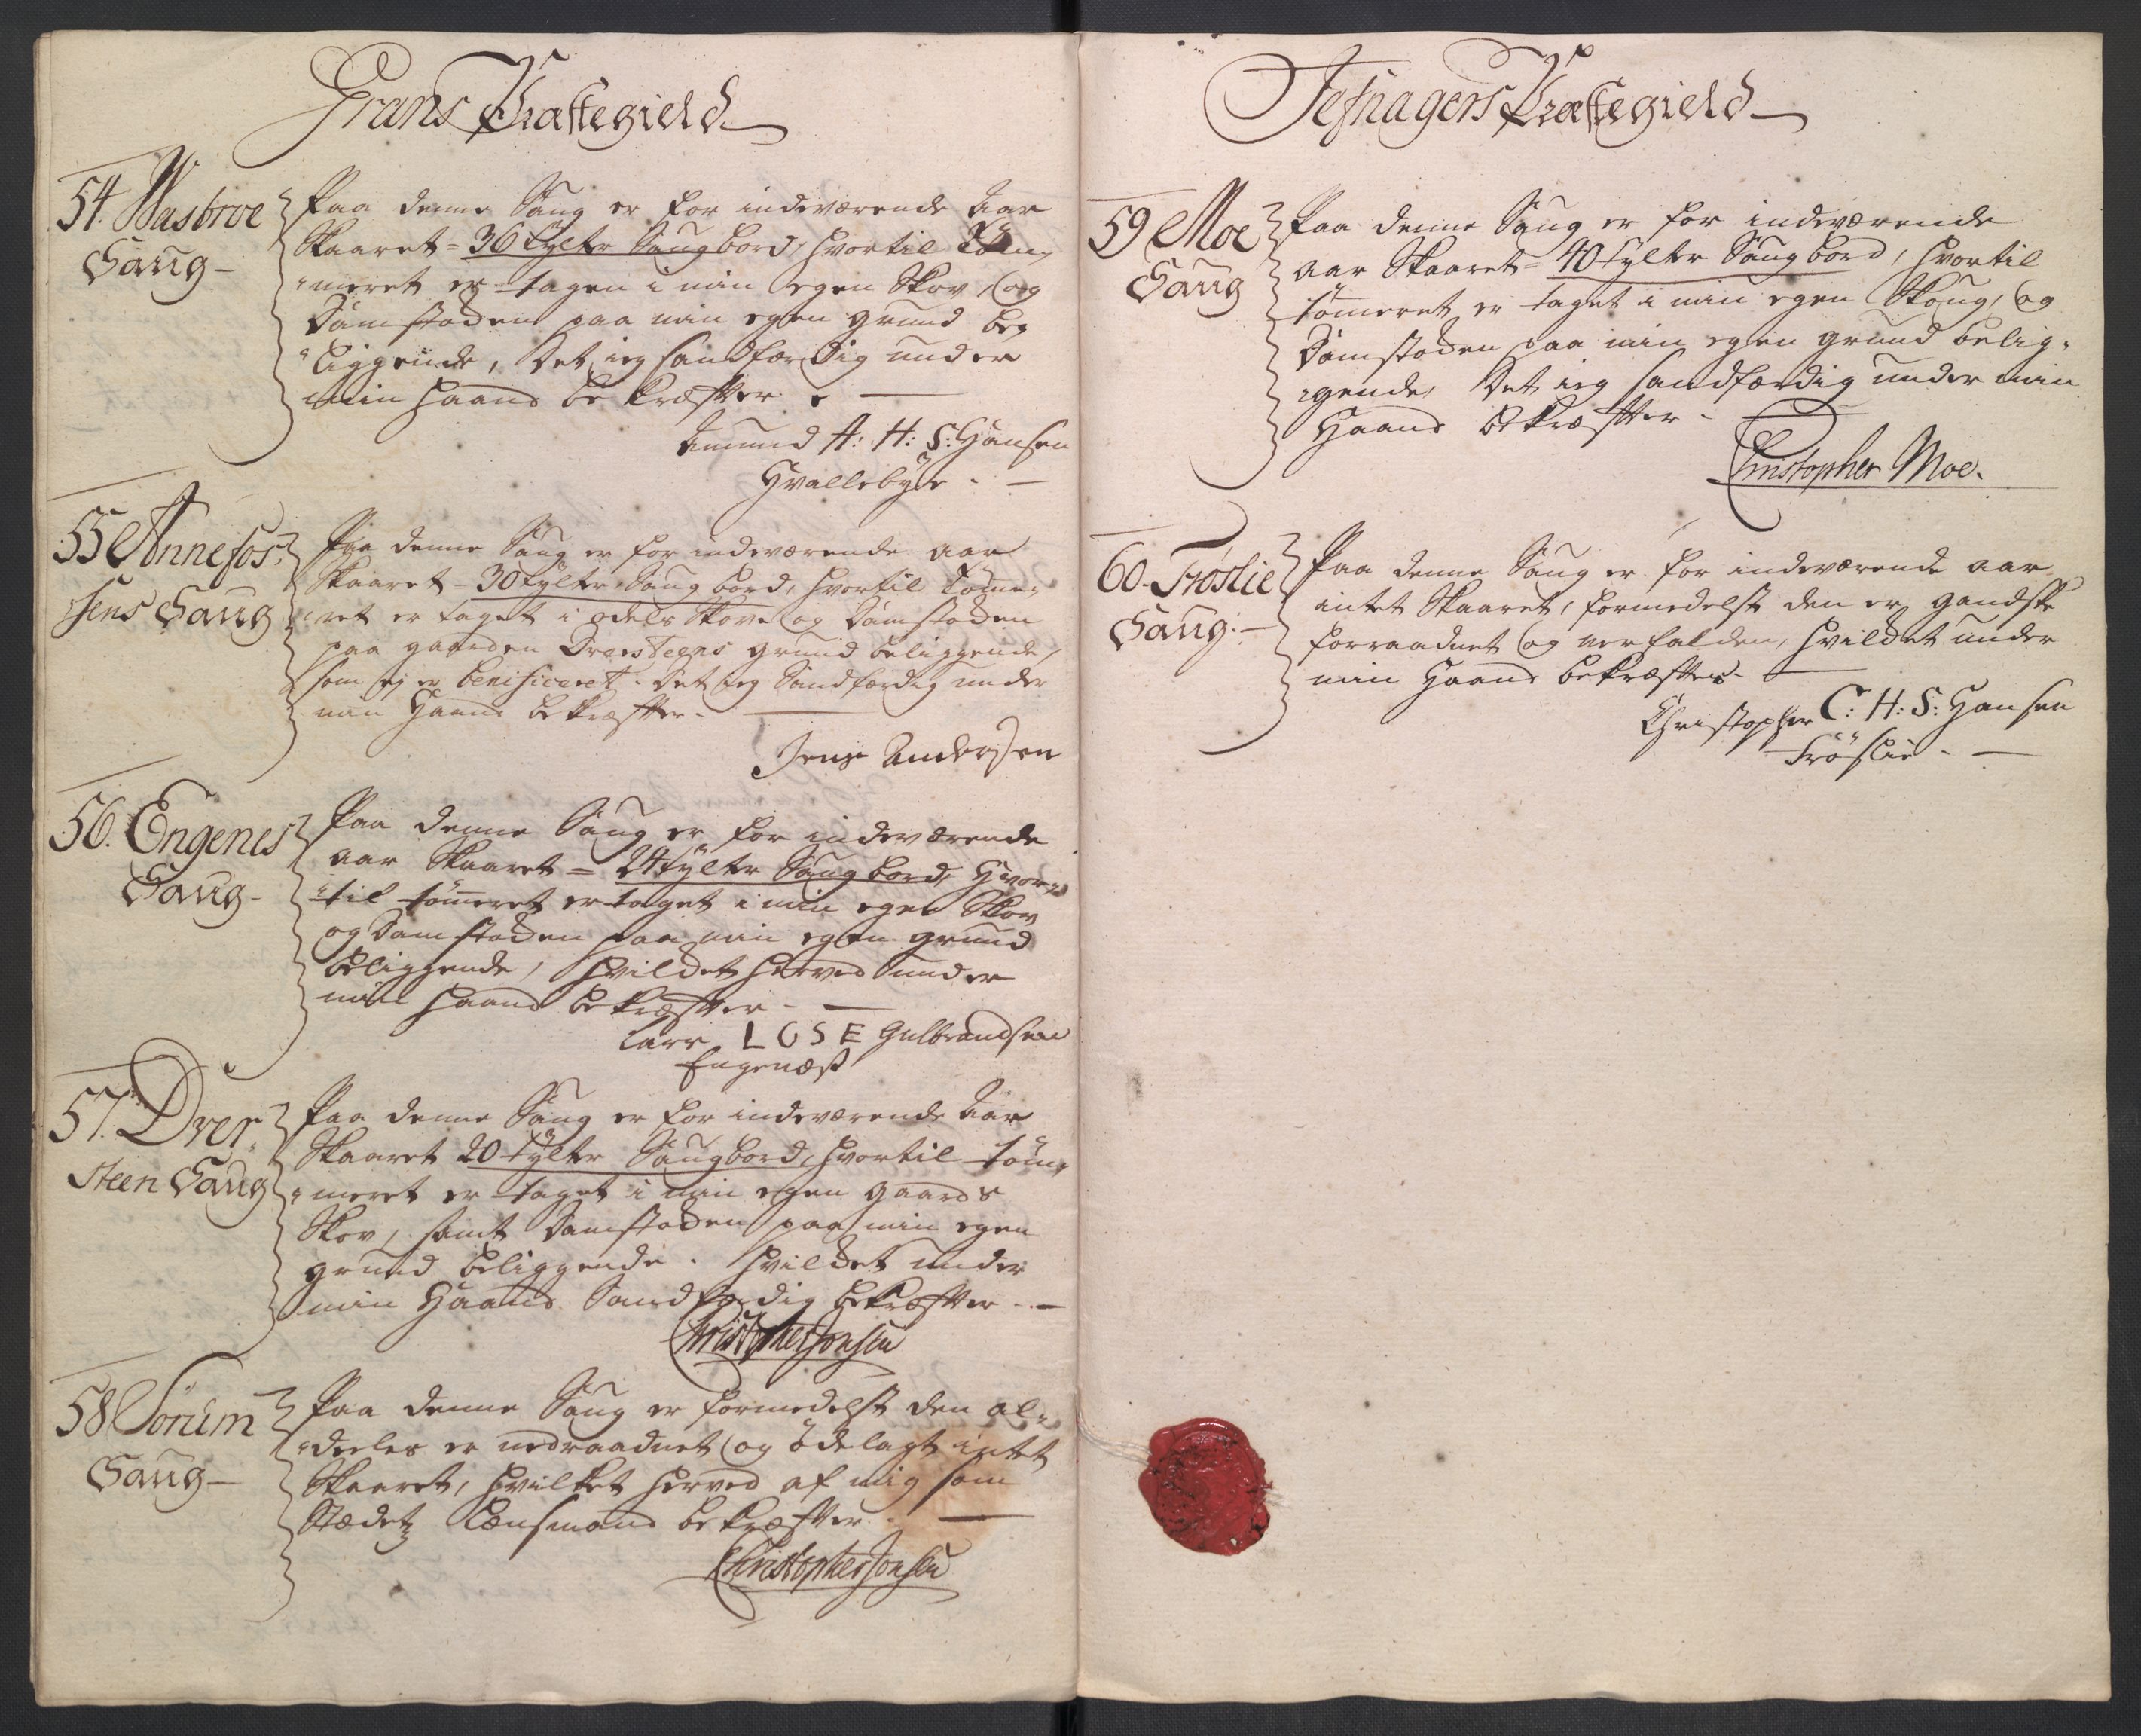 Grans Præstegield
54. Wasbroe
Saug
Paa denne Saug er for indeværende Aar
Skaaret = 36 tylter Saugbord, hvortil Töm,
meret er tagen i min egen Skov, og
Damstoden paa min egen grund be,
liggende, Det ieg sandfærdig under
min haand bekræfter
Amund A: H: S: Hansen
Hvallebÿe
55 Annefos,
sens Saug
Paa denne Saug er for indeværende aar
Skaaret = 30 tylter Saug bord, hvortil Töme,
ret er taget i odels Skove og Damstoden
paa gaarden Dversteens grund beliggende,
som ej er benificeret. Det ieg Sandfærdig under
min Haand bekræfter
Jens Andersen
56. Engenes
Saug
Paa denne Saug er for indeværende
aar Skaaret = 24 tylter Saug bord, Hvor,
til tömeret er taget i min egen Skov
og Damstoden paa min egen grund
beliggende, hvildet herved under
min haand bekræfter
Lars L G S E Gulbrandsen
Engenæs
57. Dver,
steen Saug
Paa denne Saug er for indeværende Aar
Skaaret 20 tylter Saugbord, hvortil töm,
meret er taget i min egen gaards
Skov, samt Damstoden paa min egen
grund beliggende. hvildet under
min Haand Sandfærdig bekræfter
Christopher Jonsen
58 Sörum
Saug
Paa denne Saug er formedelst den al,
deeles er nedraadnet og ödelagt intet
Skaaret, hvilket herved af mig som
Stædetz Lænsmand bekræfter
Christopher Jonsen
Jefnagers Præstegield
59 Moe
Saug
Paa denne Saug er for indeværende
aar Skaaret = 40 tylter Saug bord, hvortil
tömeret er taget i min egen Skoug, og
Damstoden paa min egen grund belig,
gende, Det ieg sandfærdig under min
Haand bekræfter
Christopher Moe.
60. Fröslie
Saug.
Paa denne Saug er for indeværende aar
intet Skaaret, formedelst den er gandske
forraadnet og nerfalden, hvildet under
min Haand bekræfter
Christopher C: H: S: Hansen
Fröslie